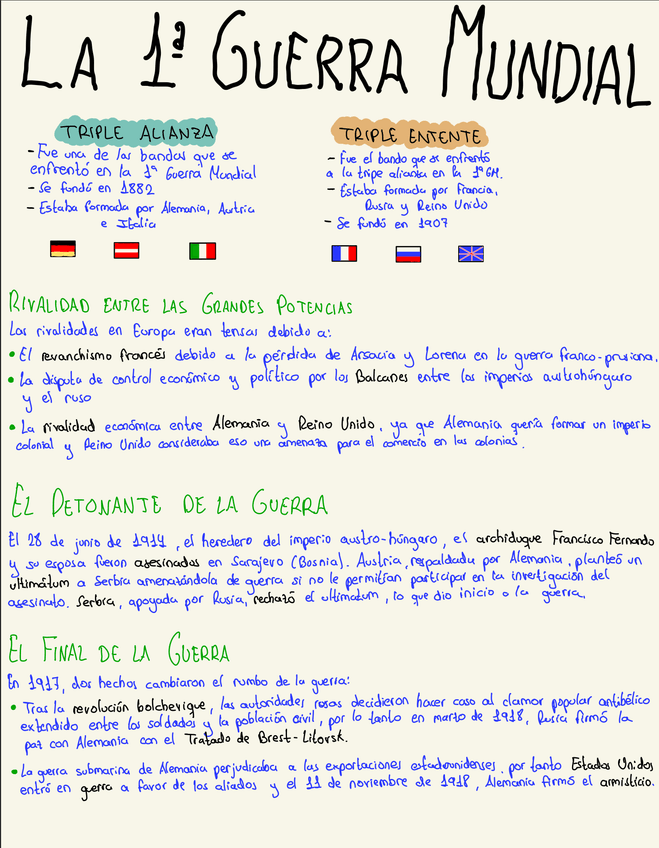 LA 1ª GUERRA MUNDIAL
TRIPLE ALIANZA
- Fue una de los bandos que se
enfrentó en la 1ª Guerra Mundial
- Se fundó en 1882
- Estaba formada por Alemania, Autria
e Italia
TRIPLE ENTENTE
- Fue el bando que se enfrentó
a la tripe alianza en la 1ª GM.
- Estaba formada por Francia,
Rusia y Reino Unido
- Se fundó en 1907
RIVALIDAD ENTRE LAS GRANDES POTENCIAS
Las rivalidades en Europa eran tensas debido a:
• El revanchismo francés debido a la pérdida de Arsacia y Lorena en la guerra franco-prusiana.
• La disputa de control económico y político por los Balcanes entre los imperios austrohúngaro
y el ruso
• La rivalidad económica entre Alemania y Reino Unido, ya que Alemania quería formar un imperio
colonial y Reino Unido consideraba eso una amenaza para el comercio en las colonias.
EL DETONANTE DE LA GUERRA
El 28 de junio de 1914, el heredero del imperio austro-húngaro, el archiduque Francisco Fernando
y su esposa fueron asesinados en Sarajevo (Bosnia). Austria, respaldada por Alemania, planteó un
ultimátum a Serbia amenazándola de guerra si no le permitían participar en la investigación del
asesinato. Serbia, apoyada por Rusia, rechazó el ultimatum, lo que dio inicio a la guerra.
EL FINAL DE LA GUERRA
En 1917, dos hechos cambiaron el rumbo de la guerra:
• Tras la revolución bolchevique, las autoridades rusas decidieron hacer caso al clamor popular antibélico
extendido entre los soldados y la población civil, por lo tanto en marzo de 1918, Rusia firmó la
paz con Alemania con el Tratado de Brest-Litovsk.
• La guerra submarina de Alemania perjudicaba a las exportaciones estadounidenses, por tanto Estados Unidos
entró en guerra a favor de los aliados y el 11 de noviembre de 1918, Alemania firmó el armisticio.